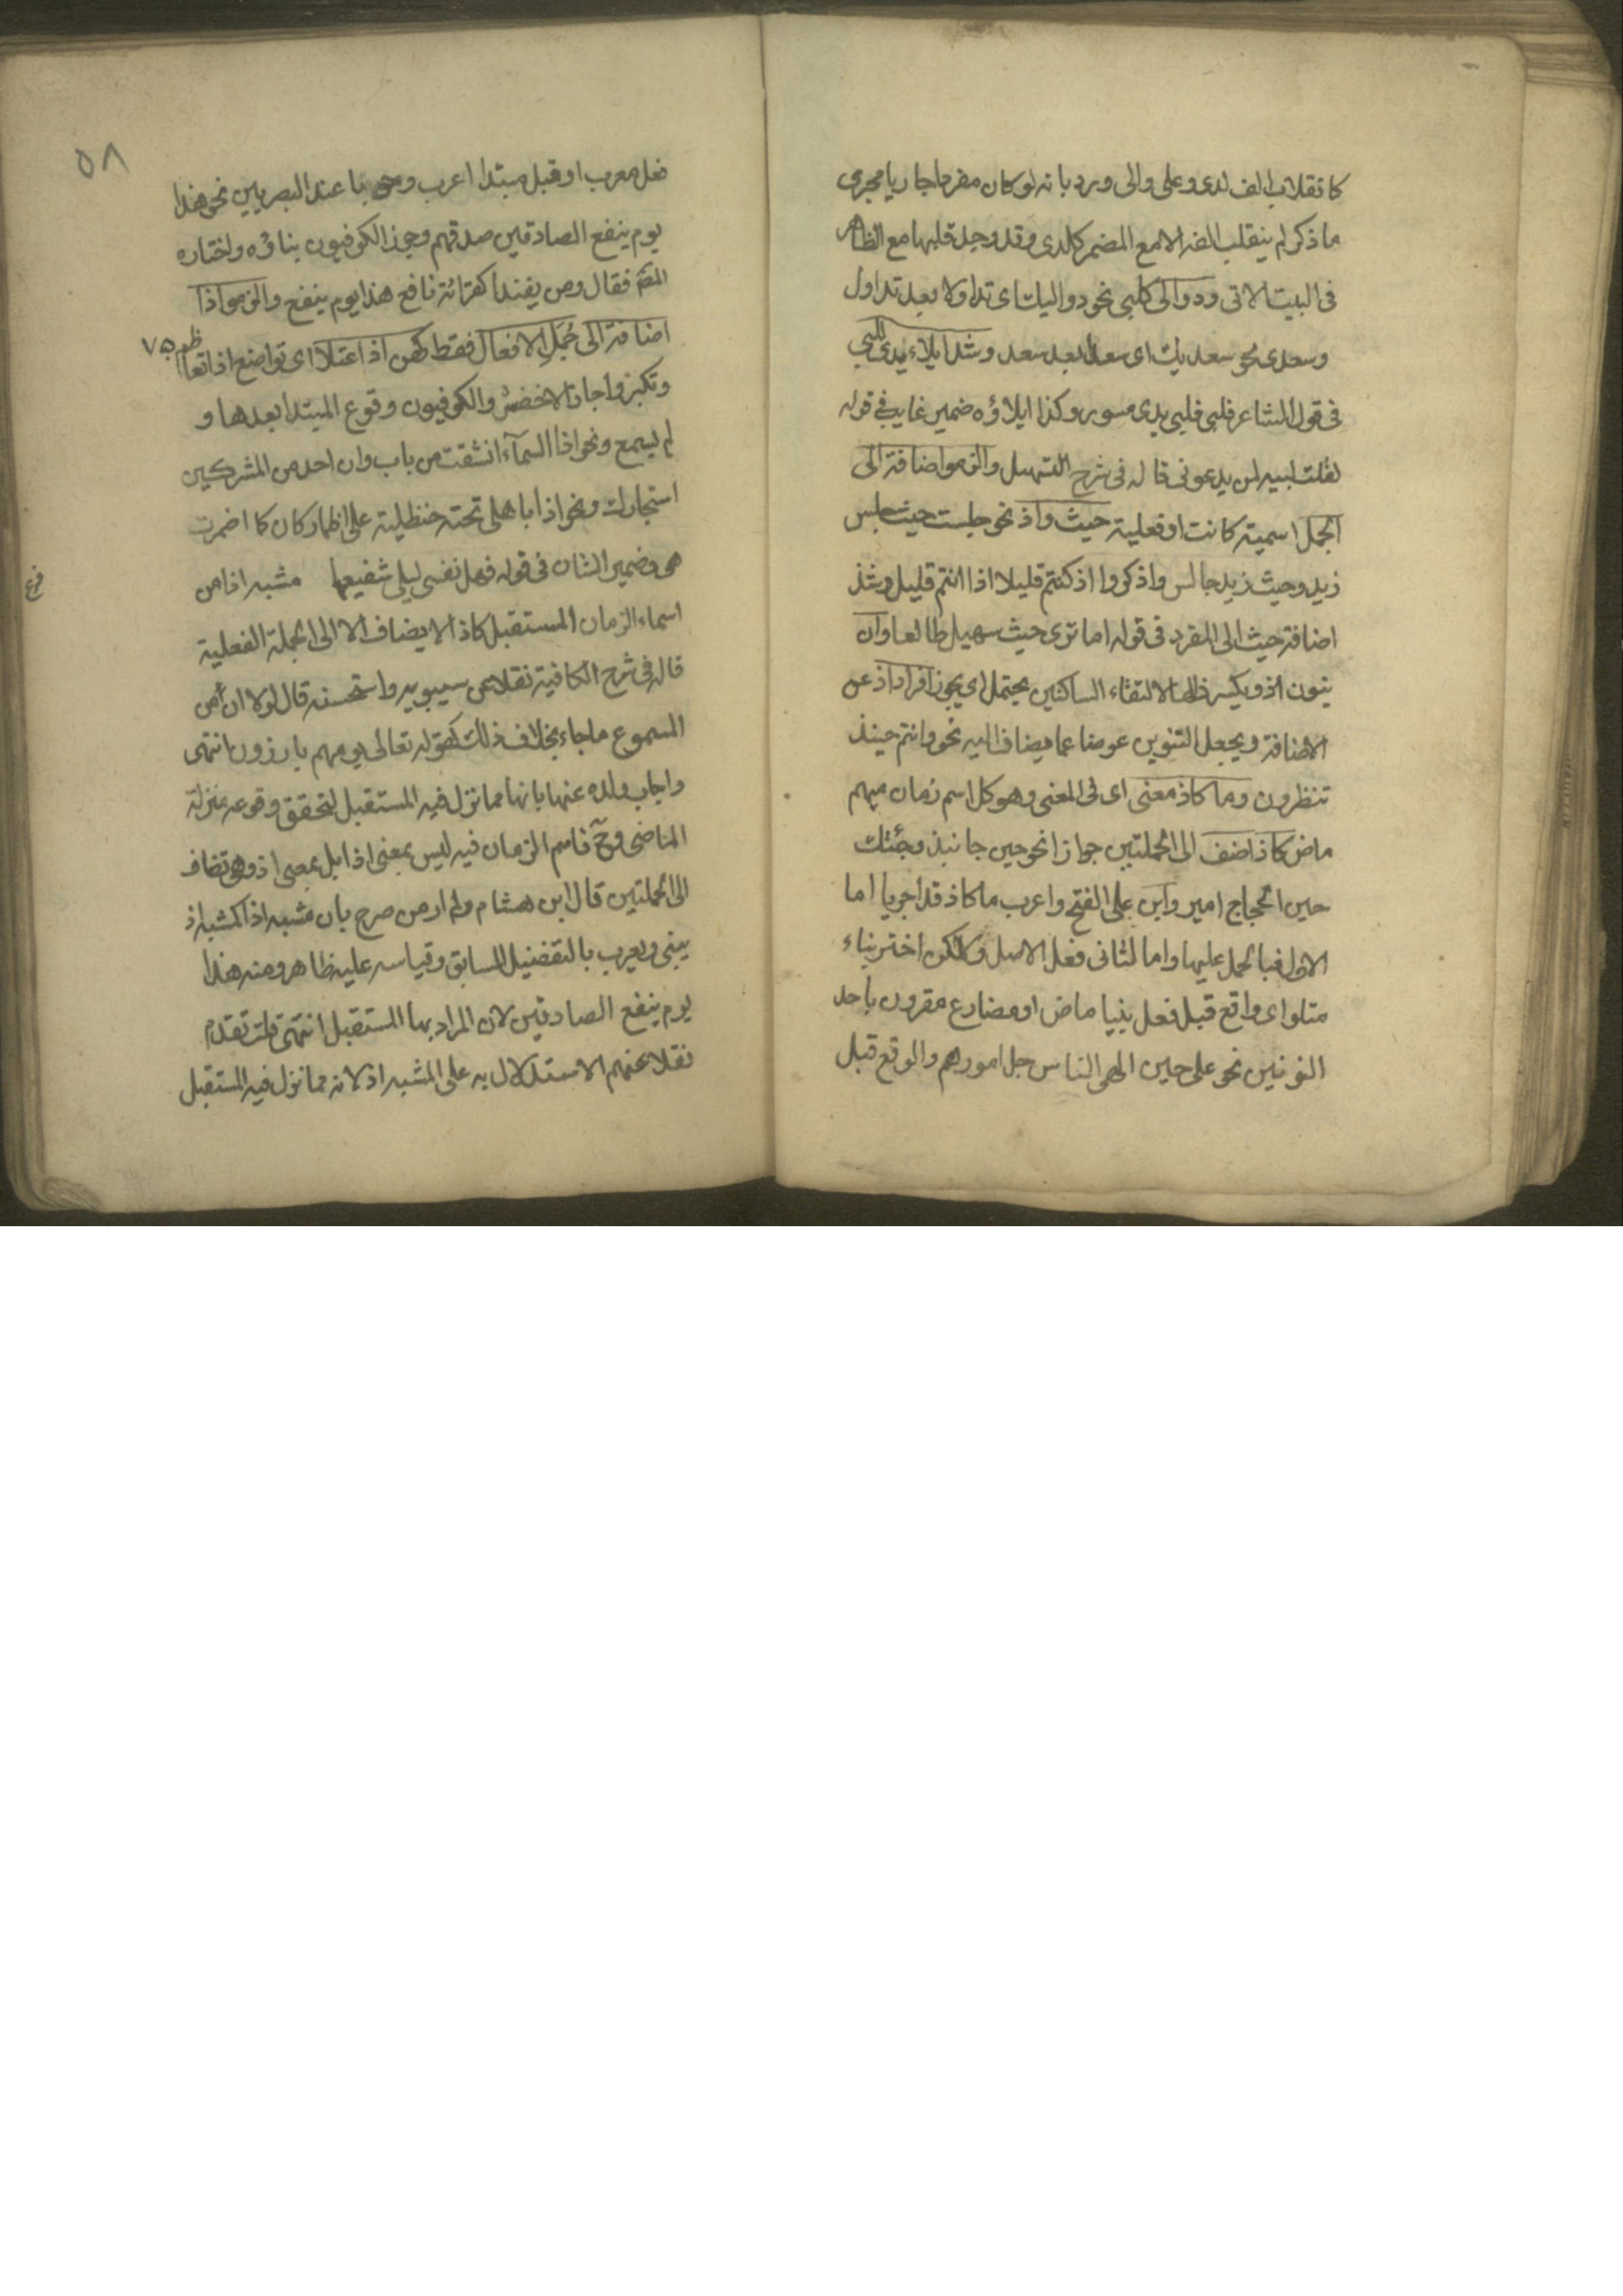 كما تقلاب الف لدى وعلى والى ورد بانه لو كان مفردا جاريا مجرى
ما ذكر لم ينقلب الفه الا مع المضمر كلدى وقد وجد قلبها مع الظاهر
فى البيت الاتى ودوالى كلبى نحو دواليك اى تداولا بعد تداول
وسعدى نحو سعديك اى سعدا بعد سعد وشذ ايلاء يدى للبى
فى قول الشاعر فلبى فلبى يدى مسور وكذا ايلاؤه ضمير غايب فى قوله
لقلت لبيه لمن يدعونى قاله فى شرح التسهيل والزموا اضافة الى
الجمل اسمية كانت او فعلية حيث واذ نحو جلست حيث جلس
زيد وحيث زيد جالس واذكروا اذ كنتم قليلا اذ انتم قليل وشذ
اضافة حيث الى المفرد فى قوله اما ترى حيث سهيل طالعا وان
ينون اذ ويكسر ذالها لالتقاء الساكنين يحتمل اى يجوز افراد اذ عن
الاضافة ويجعل التنوين عوضا عما يضاف اليه نحو وانتم حينئذ
تنظرون وما كاذ معنى اى فى المعنى وهو كل اسم زمان مبهم
ماض كاذ اضف الى الجملتين جوازا نحو حين جا نبذ وجئتك
حين الحجاج امير وابن على الفتح واعرب ما كاذ قد اجريا اما
الاول فبالحمل عليها واما الثانى فعلى الاصل ولكن اختر بناء
متلو اى واقع قبل فعل بنيا ماض او مضارع مقرون باحد
النونين نحو على حين الهى الناس جل امورهم والوقع قبل
٥٨
فعل معرب او قبل مبتدا اعرب وجوبا عند البصريين نحو هذا
يوم ينفع الصادقين صدقهم وجوز الكوفيون بناؤه واختاره
المصنف فقال ومن بنى فلن يفندا كقرائة نافع هذا يوم ينفع والزموا اذا
اضافة الى جمل الافعال فقط كهن اذا اعتلا اى تواضع اذا تعاظم
وتكبر واجاز الاخفش والكوفيون وقوع المبتدا بعدها و
لم يسمع ونحو اذا السمآء انشقت من باب وان احد من المشركين
استجارك ونحو اذا باهلى تحته حنظلية على اظمار كان كما اضمرت
هى وضمير الشان فى قوله فهلا نفس ليلى شفيعها مشبه اذا من
فرع
اسماء الزمان المستقبل كاذا لا يضاف الا الى الجملة الفعلية
قاله فى شرح الكافية نقلا عن سيبويه واستحسنه قال لولا ان من
المسموع ما جاء بخلاف ذلك كقوله تعالى يوم هم بارزون انتهى
واجاب ولده عنها بانها مما نزل فيه المستقبل لتحقق وقوعه بمنزلة
الماضى وح فاسم الزمان فيه ليس بمعنى اذا بل بمعنى اذ وهى تضاف
الى الجملتين قال ابن هشام ولم ار من صرح بان مشبه اذا كمشبه اذ
يبنى ويعرب بالتفضيل السابق وقياسه عليه ظاهر ومنه هذا
يوم ينفع الصادقين لان المراد بها المستقبل انتهى قلت تقدم
نقلا عنهم الاستدلال به على المشبه اذ لانه مما نزل فيه المستقبل